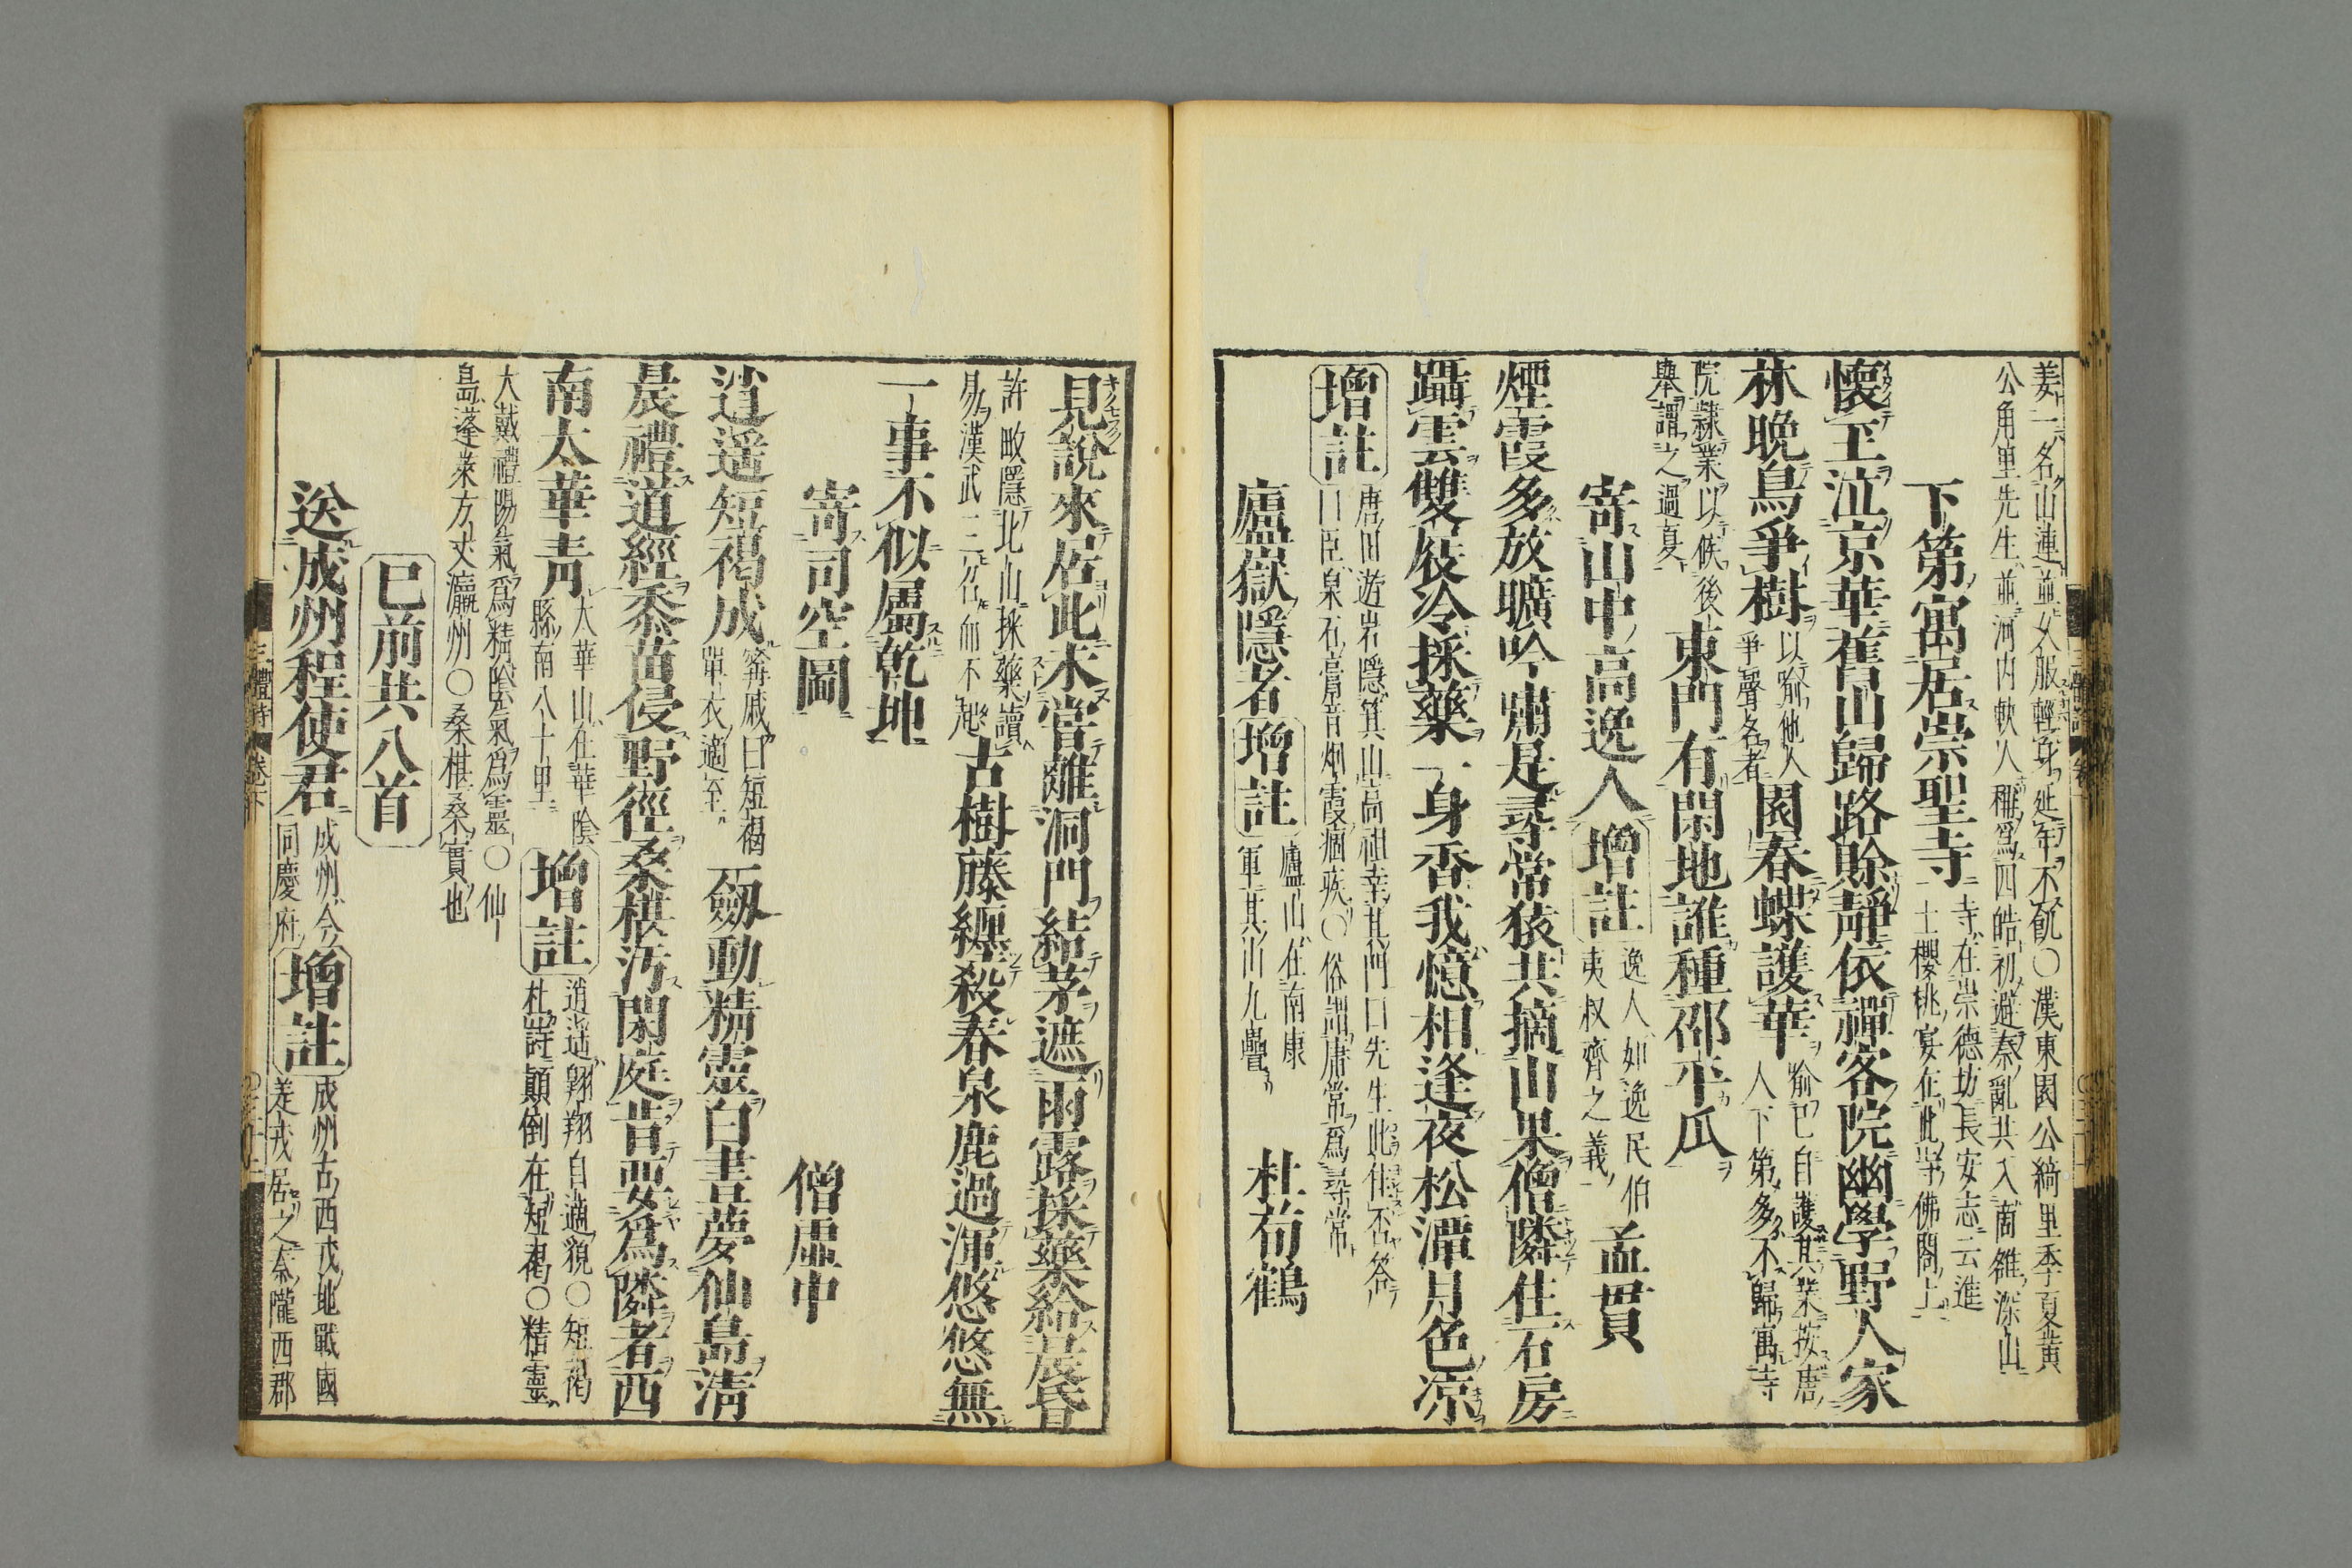 姜一名山連並久服輕身延年不飢〇漢東園公綺里季夏黃
公角里先生並河内軹人稱爲四皓初避秦亂共入商雒深山
下第寓居崇聖寺
寺在崇德坊長安志云進
士櫻桃宴在此寺佛閣上
懷玉泣京華舊山歸路賖靜依禪客院幽學野人家
林晚鳥爭樹
以喩他人
爭聲名者
園春蝶護華
喩已自護其業按唐
人下第多不歸寓寺
院隸業以候後
舉謂之過夏
東門有閑地誰種邵平瓜
寄山中高逸人
增註
逸人如逸民伯
夷叔齊之義
孟貫
煙霞多放曠吟嘯是尋常猿共摘山果僧隣住石房
躡雲雙屐冷採藥一身香我憶相逢夜松潭月色凉
增註
唐田遊岩隱箕山高祖幸其門曰先生此佳否答
曰臣泉石膏肓烟霞痼疾〇俗謂庸常爲尋常
廬嶽隱者
增註
廬山在南康
軍其山九疊
杜荀鶴
見說來居此未嘗離洞門結茅遮雨露採藥給晨昏
許畋隱北山採藥讀
易漢武三召而不起
古樹藤纏殺春泉鹿過渾悠悠無
一事不似屬乾坤
寄司空圖
僧虛中
逍遥短褐成
甯戚曰短褐
單衣適至
一劔動精靈白晝夢仙島淸
晨禮道經黍苗侵野徑桑椹汚閑庭昔要爲隣者西
南太華靑
大華山在華陰
縣南八十里
增註
逍遥翱翔自適貌〇短褐
杜詩顚倒在短褐〇精靈
大戴禮陽氣爲精陰氣爲靈〇仙
島蓬萊方丈瀛州〇桑椹桑實也
已前共八首
送成州程使君
成州今
同慶府
增註
成州古西戎地戰國
羌戎居之秦隴西郡
三體詩
卷下